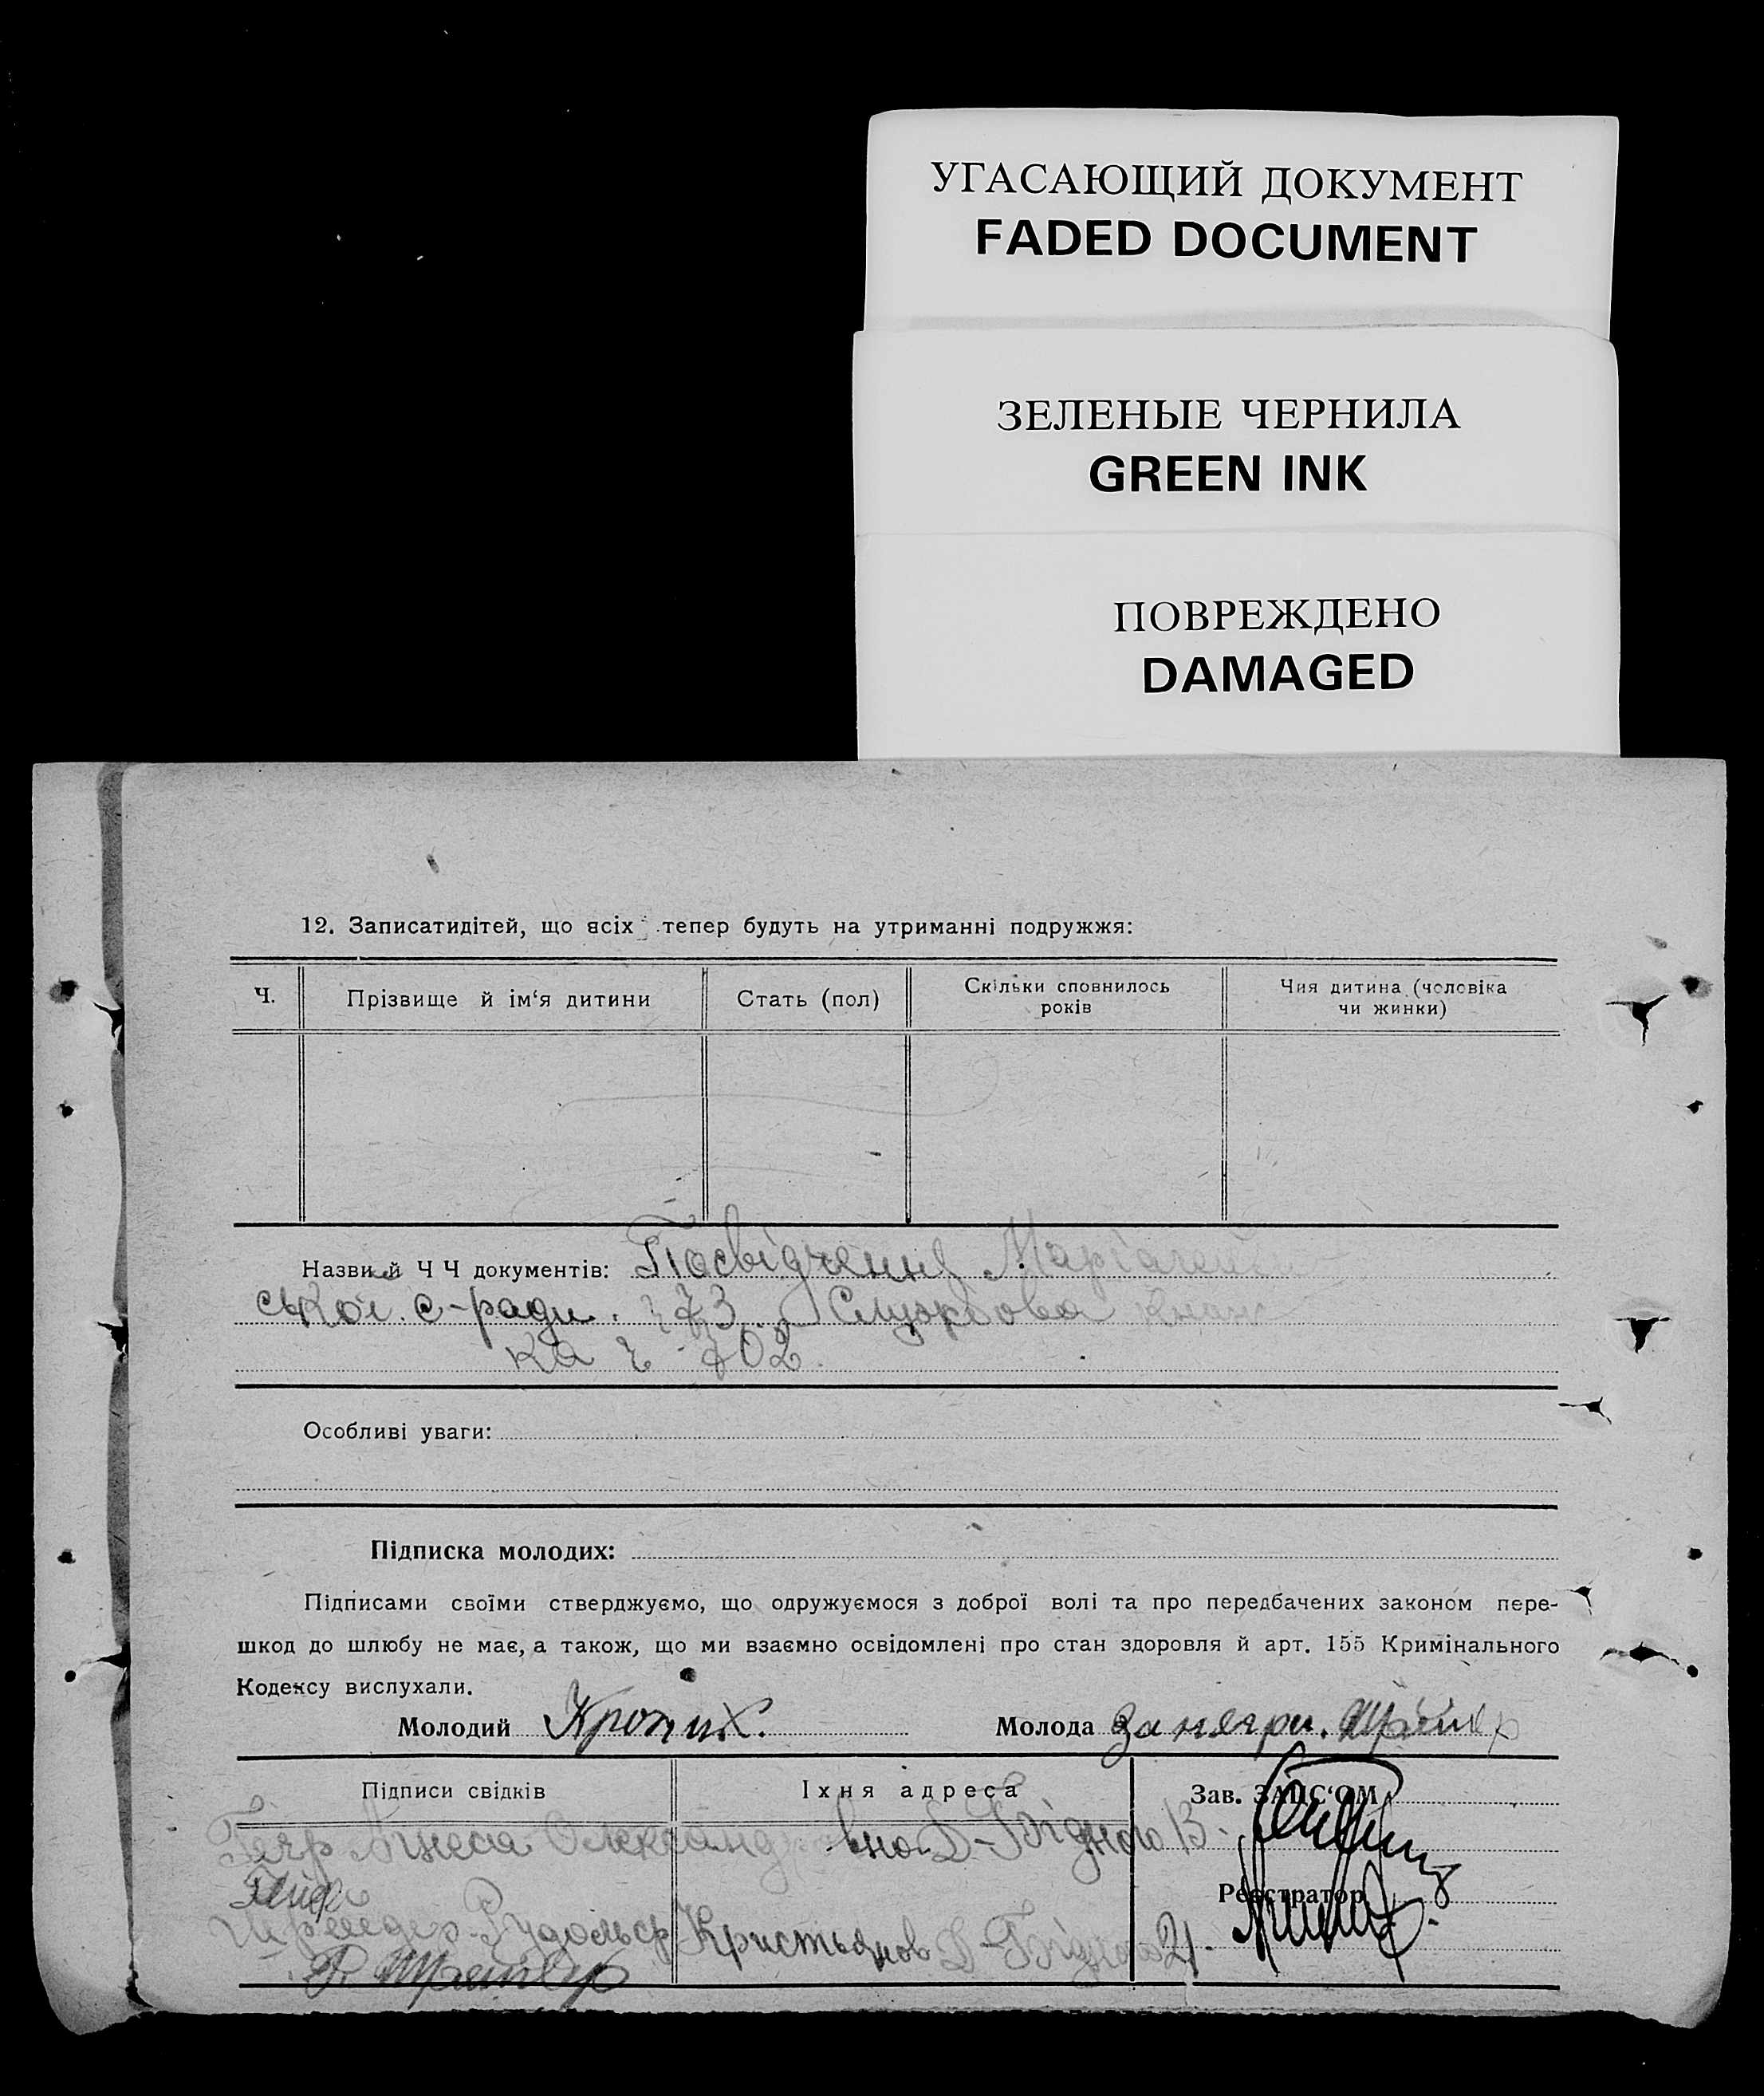 УГАСАЮЩИЙ ДОКУМЕНТ
FADED DOCUMENT
ЗЕЛЕНЫЕ ЧЕРНИЛА
GREEN INK
ПОВРЕЖДЕНО
DAMAGED
12. Записатидітей, що всіх тепер будуть на утриманні подружжя:
Ч.
Прізвище й ім‘я дитини
Стать (пол)
Скільки сповнилось
років
Чия дитина (чоловіка
чи жинки)
Назви й Ч Ч документів: Посвідчення
ської с-ради. Службова книж
ка ч 702.
Особливі уваги:
Підписка молодих:
Підписами своїми стверджуємо, що одружуємося з доброї волі та про передбачених законом пере-
шкод до шлюбу не має, а також, що ми взаємно освідомлені про стан здоровля й арт. 155 Кримінального
Кодексу вислухали.
Молодий
Молода за негри.
Підписи свідків
Їхня адреса
Зав. ЗАЦС‘ОМ
Агнеса Олександровна Д-Бідного 13.
Реєстратор
Рудольф Кристьянов Д-Бідного 21.